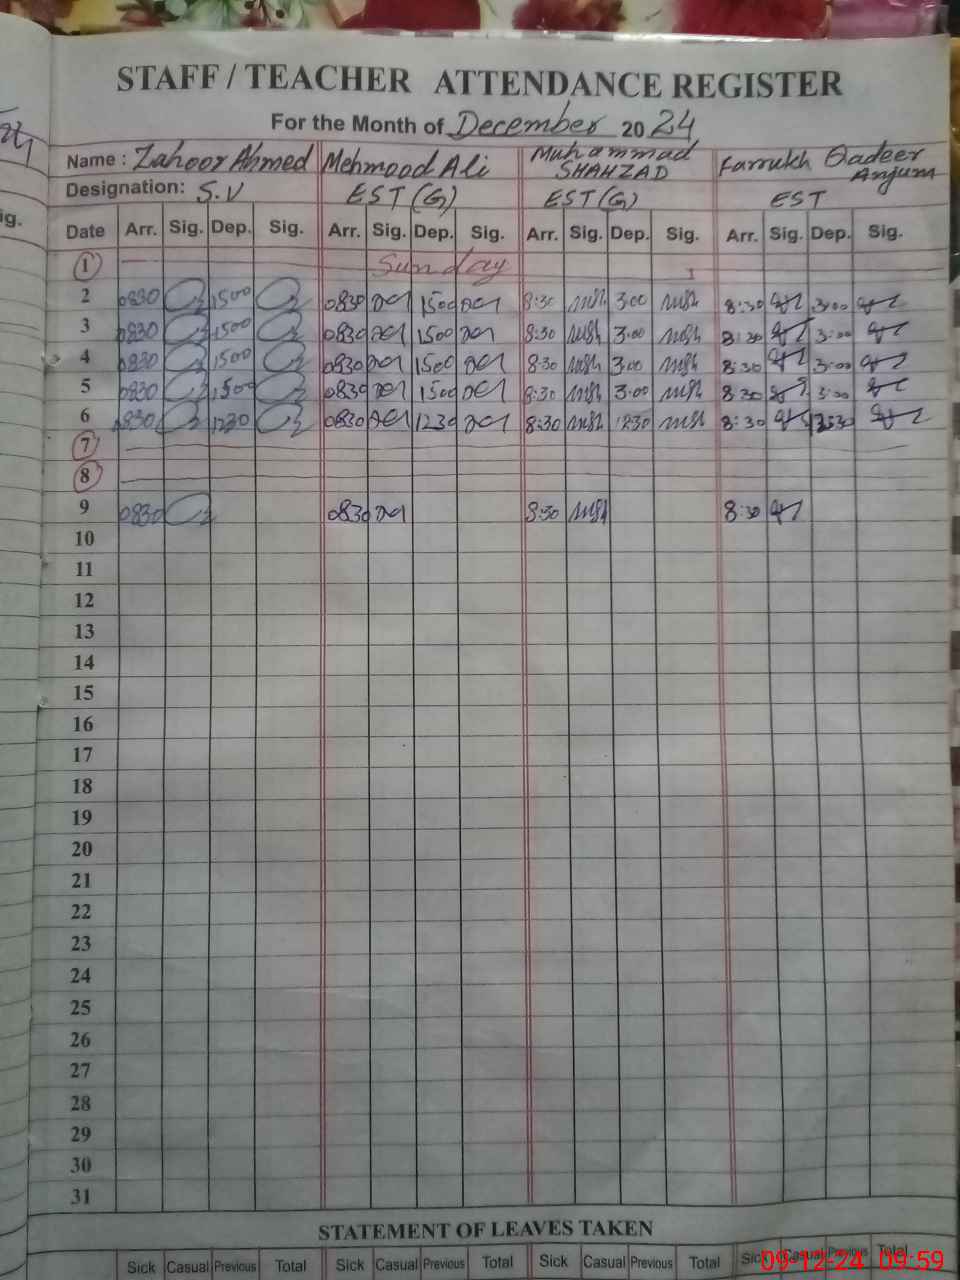 STAFF / TEACHER ATTENDANCE REGISTER
For the Month of December 2024
Name : Zahoor Ahmed Mehmood Ali Muhammad SHAHZAD Farrukh Qadeer Anjum
Designation: S.V EST (G) EST (G) EST
Sig.
Date Arr. Sig. Dep. Sig. Arr. Sig. Dep. Sig. Arr. Sig. Dep. Sig. Arr. Sig. Dep. Sig.
1 Sunday
2 0830 1500 0830 1500 8:30 3:00 8:30 3:00
3 0830 1500 0830 1500 8:30 3:00 8:30 3:00
4 0830 1500 0830 1500 8:30 3:00 8:30 3:00
5 0830 1500 0830 1500 8:30 3:00 8:30 3:00
6 0830 1230 0830 1230 8:30 1230 8:30
7
8
9 0830 0830 8:30 8:30
10
11
12
13
14
15
16
17
18
19
20
21
22
23
24
25
26
27
28
29
30
31
STATEMENT OF LEAVES TAKEN
Sick Casual Previous Total Sick Casual Previous Total Sick Casual Previous Total Sick Casual Previous Total
09-12-24 09:59